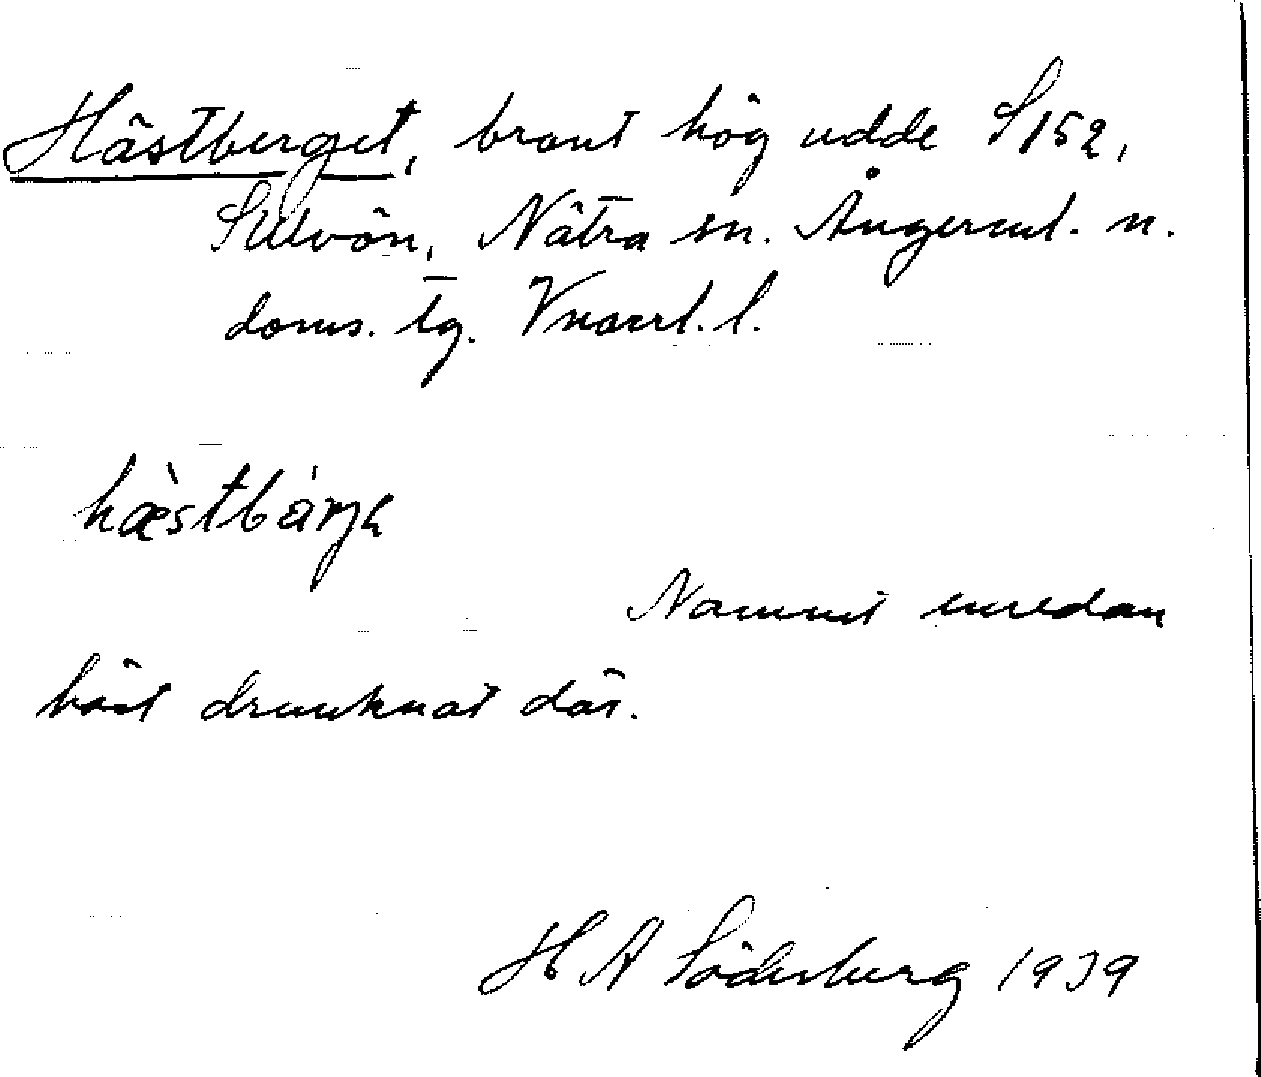 Hästberget, brant hög udde S 152,
S. Ulvön, Nätra sn. Ångerml. n.
doms. tg. Vnorrl. l.
hæ̀stbárja
Namnet emedan
häst drunknat där.
H A Söderberg 1939